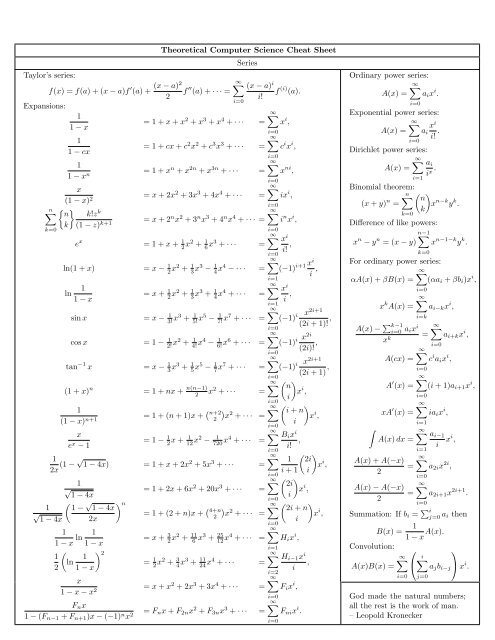 Theoretical Computer Science Cheat Sheet
Series
Taylor's series:
f(x) = f(a) + (x − a)f′(a) + (x − a)²/2 f″(a) + ··· = ∑_{i=0}^{∞} (x − a)^i/i! f^{(i)}(a).
Expansions:
1/(1 − x) = 1 + x + x² + x³ + x⁴ + ··· = ∑_{i=0}^{∞} x^i,
1/(1 − cx) = 1 + cx + c²x² + c³x³ + ··· = ∑_{i=0}^{∞} c^i x^i,
1/(1 − x^n) = 1 + x^n + x^{2n} + x^{3n} + ··· = ∑_{i=0}^{∞} x^{ni},
x/(1 − x)² = x + 2x² + 3x³ + 4x⁴ + ··· = ∑_{i=0}^{∞} ix^i,
∑_{k=0}^{n} {n k} k!z^k/(1 − z)^{k+1} = x + 2^n x² + 3^n x³ + 4^n x⁴ + ··· = ∑_{i=0}^{∞} i^n x^i,
e^x = 1 + x + ½x² + ⅙x³ + ··· = ∑_{i=0}^{∞} x^i/i!,
ln(1 + x) = x − ½x² + ⅓x³ − ¼x⁴ − ··· = ∑_{i=1}^{∞} (−1)^{i+1} x^i/i,
ln 1/(1 − x) = x + ½x² + ⅓x³ + ¼x⁴ + ··· = ∑_{i=1}^{∞} x^i/i,
sin x = x − 1/3! x³ + 1/5! x⁵ − 1/7! x⁷ + ··· = ∑_{i=0}^{∞} (−1)^i x^{2i+1}/(2i + 1)!,
cos x = 1 − 1/2! x² + 1/4! x⁴ − 1/6! x⁶ + ··· = ∑_{i=0}^{∞} (−1)^i x^{2i}/(2i)!,
tan⁻¹ x = x − ⅓x³ + ⅕x⁵ − 1/7 x⁷ + ··· = ∑_{i=0}^{∞} (−1)^i x^{2i+1}/(2i + 1),
(1 + x)^n = 1 + nx + n(n−1)/2 x² + ··· = ∑_{i=0}^{∞} (n i) x^i,
1/(1 − x)^{n+1} = 1 + (n + 1)x + (n+2 2) x² + ··· = ∑_{i=0}^{∞} (i + n i) x^i,
x/(e^x − 1) = 1 − ½x + 1/12 x² − 1/720 x⁴ + ··· = ∑_{i=0}^{∞} B_i x^i/i!,
1/2x (1 − √(1 − 4x)) = 1 + x + 2x² + 5x³ + ··· = ∑_{i=0}^{∞} 1/(i + 1) (2i i) x^i,
1/√(1 − 4x) = 1 + 2x + 6x² + 20x³ + ··· = ∑_{i=0}^{∞} (2i i) x^i,
1/√(1 − 4x) ((1 − √(1 − 4x))/2x)^n = 1 + (2 + n)x + (4+n 2) x² + ··· = ∑_{i=0}^{∞} (2i + n i) x^i,
1/(1 − x) ln 1/(1 − x) = x + 3/2 x² + 11/6 x³ + 25/12 x⁴ + ··· = ∑_{i=1}^{∞} H_i x^i,
1/2 (ln 1/(1 − x))² = ½x² + ¾x³ + 11/24 x⁴ + ··· = ∑_{i=2}^{∞} H_{i−1}x^i/i,
x/(1 − x − x²) = x + x² + 2x³ + 3x⁴ + ··· = ∑_{i=0}^{∞} F_i x^i,
F_n x/(1 − (F_{n−1} + F_{n+1})x − (−1)^n x²) = F_n x + F_{2n}x² + F_{3n}x³ + ··· = ∑_{i=0}^{∞} F_{ni}x^i.
Ordinary power series:
A(x) = ∑_{i=0}^{∞} a_i x^i.
Exponential power series:
A(x) = ∑_{i=0}^{∞} a_i x^i/i!.
Dirichlet power series:
A(x) = ∑_{i=1}^{∞} a_i/i^x.
Binomial theorem:
(x + y)^n = ∑_{k=0}^{n} (n k) x^{n−k}y^k.
Difference of like powers:
x^n − y^n = (x − y) ∑_{k=0}^{n−1} x^{n−1−k}y^k.
For ordinary power series:
αA(x) + βB(x) = ∑_{i=0}^{∞} (αa_i + βb_i)x^i,
x^k A(x) = ∑_{i=k}^{∞} a_{i−k}x^i,
(A(x) − ∑_{i=0}^{k−1} a_i x^i)/x^k = ∑_{i=0}^{∞} a_{i+k}x^i,
A(cx) = ∑_{i=0}^{∞} c^i a_i x^i,
A′(x) = ∑_{i=0}^{∞} (i + 1)a_{i+1}x^i,
xA′(x) = ∑_{i=1}^{∞} ia_i x^i,
∫ A(x) dx = ∑_{i=1}^{∞} a_{i−1}/i x^i,
(A(x) + A(−x))/2 = ∑_{i=0}^{∞} a_{2i}x^{2i},
(A(x) − A(−x))/2 = ∑_{i=0}^{∞} a_{2i+1}x^{2i+1}.
Summation: If b_i = ∑_{j=0}^{i} a_i then
B(x) = 1/(1 − x) A(x).
Convolution:
A(x)B(x) = ∑_{i=0}^{∞} (∑_{j=0}^{i} a_j b_{i−j}) x^i.
God made the natural numbers;
all the rest is the work of man.
– Leopold Kronecker